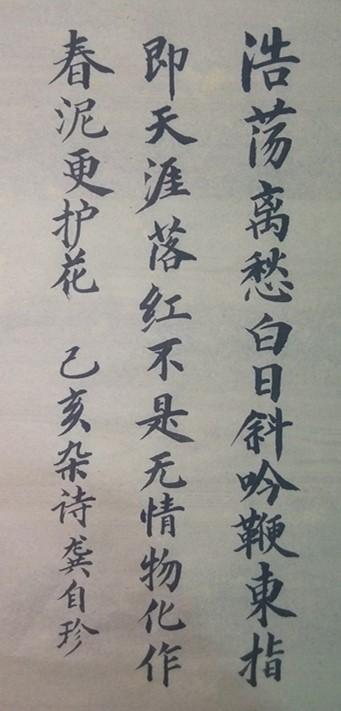 浩荡离愁白日斜吟鞭東指
即天涯落红不是无情物化作
春泥更护花 己亥杂诗龚自珍